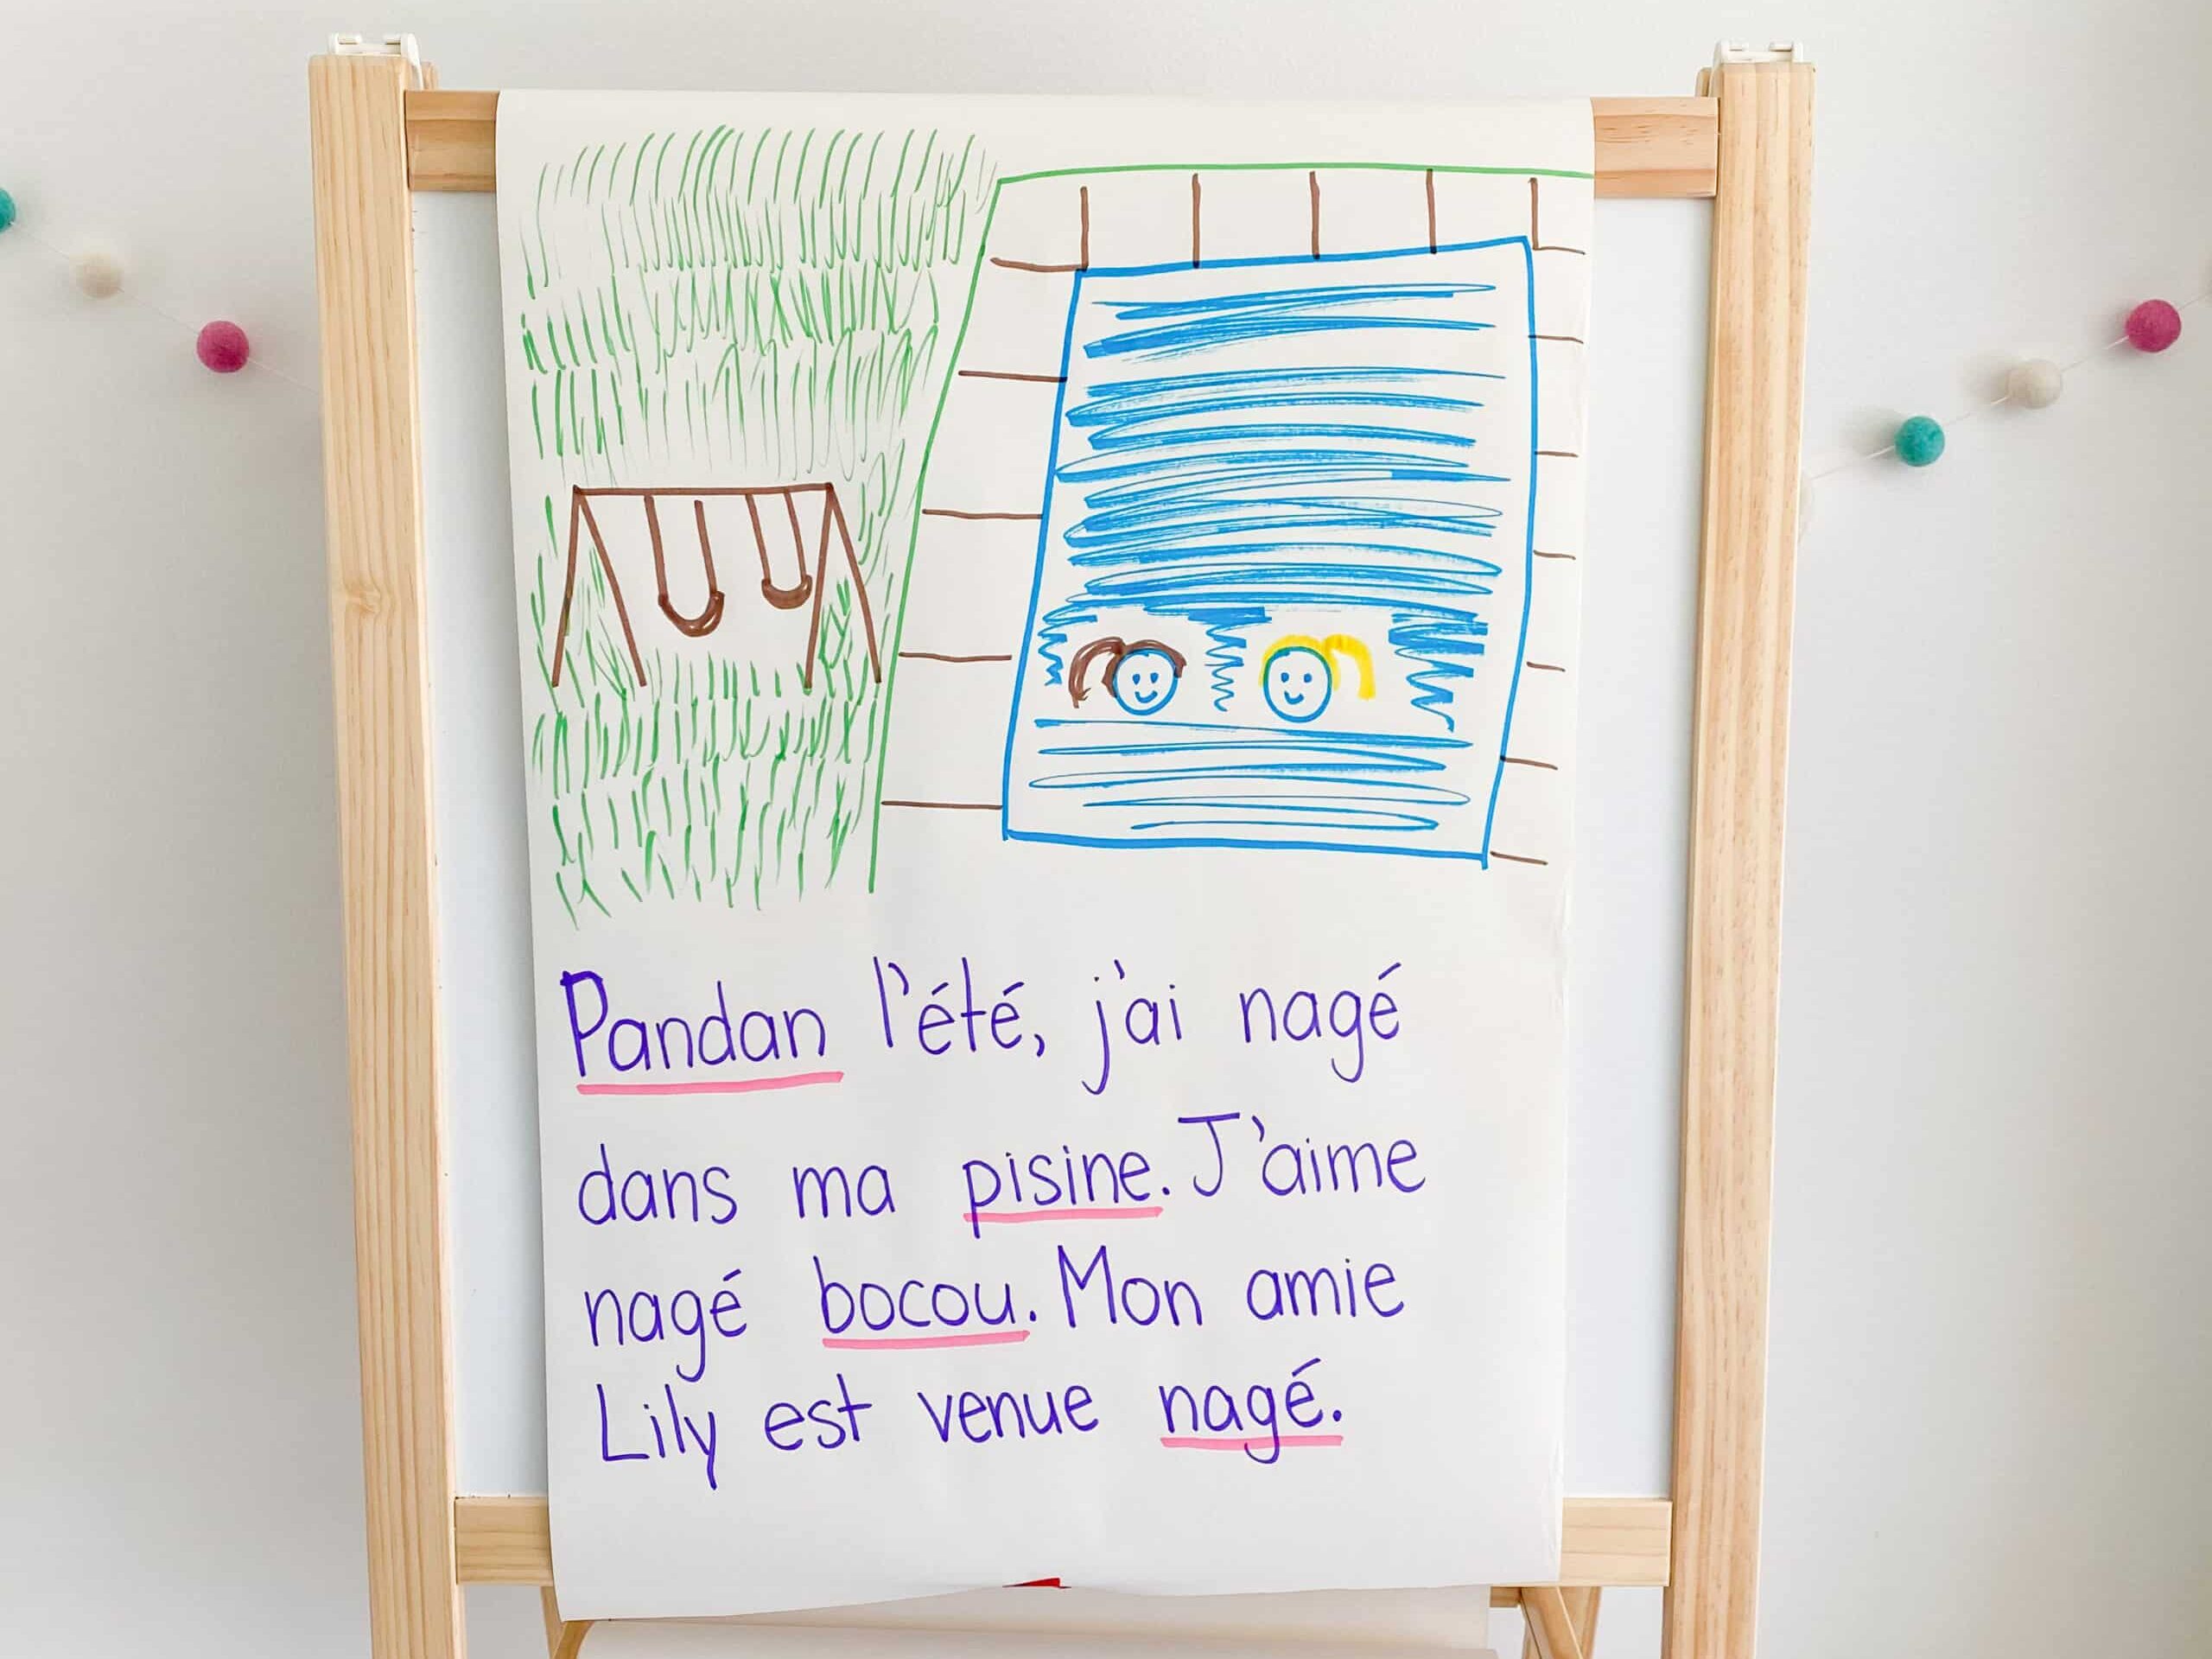 Pandan l'été, j'ai nagé
dans ma pisine. J'aime
nagé bocou. Mon amie
Lily est venue nagé.